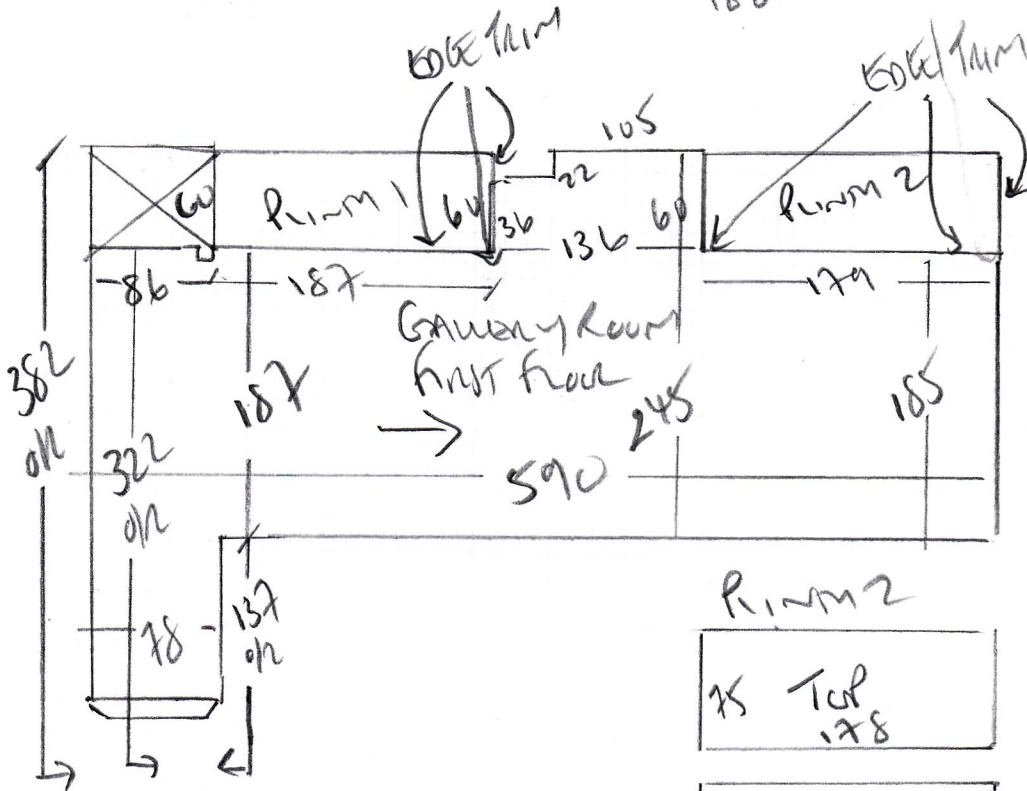 EDGE TRIM
EDGE/TRIM
105
60
PLINTH 1
60
22
36
136
60
PLINTH 2
86
187
179
GALLERY ROOM
FIRST FLOOR
382
O/R
322
O/R
187
245
185
590
78
137
O/R
PLINTH 2
75 TOP
178